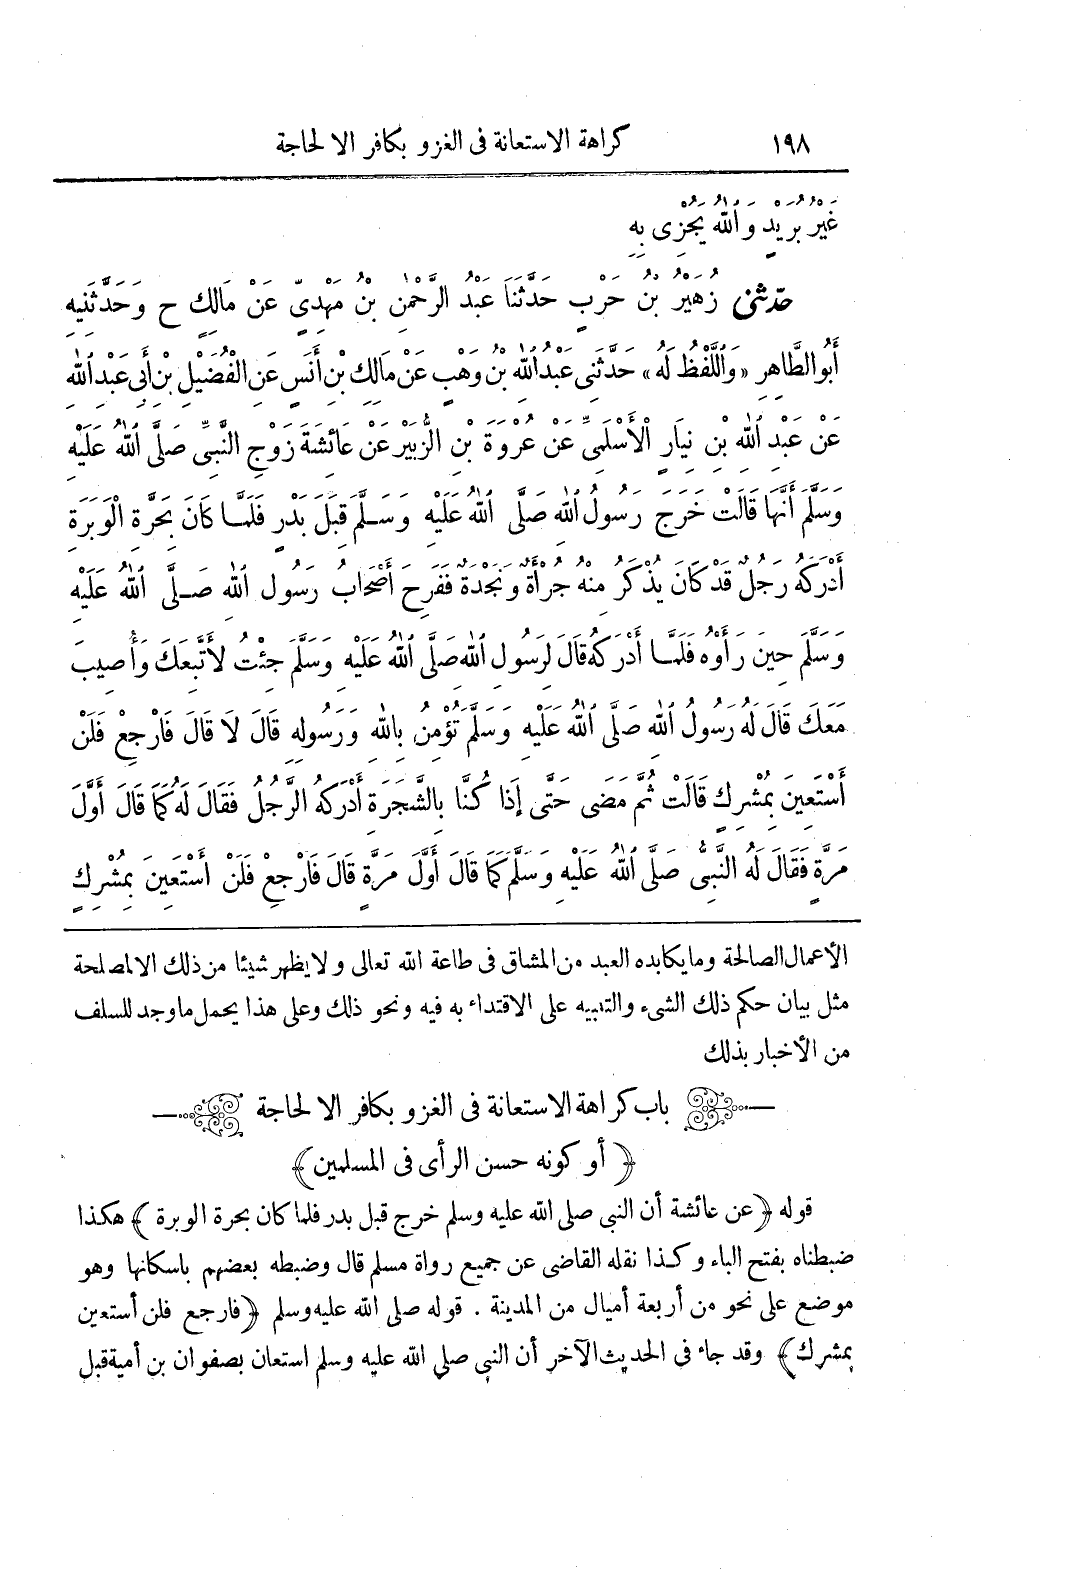 ١٩٨ كراهة الاستعانة فى الغزو بكافر الا لحاجة
غَيْرُ بُرَيْدٍ وَٱللهُ يُجْزِى بِهِ
حَدَّثَنِى زُهَيْرُ بْنُ حَرْبٍ حَدَّثَنَا عَبْدُ الرَّحْمٰنِ بْنُ مَهْدِىٍّ عَنْ مَالِكٍ ح وَحَدَّثَنِيهِ
أَبُو الطَّاهِرِ «وَٱللَّفْظُ لَهُ» حَدَّثَنِى عَبْدُ ٱللهِ بْنُ وَهْبٍ عَنْ مَالِكِ بْنِ أَنَسٍ عَنِ الْفُضَيْلِ بْنِ أَبِى عَبْدِ ٱللهِ
عَنْ عَبْدِ ٱللهِ بْنِ نِيَارٍ الْأَسْلَمِىِّ عَنْ عُرْوَةَ بْنِ الزُّبَيْرِ عَنْ عَائِشَةَ زَوْجِ النَّبِىِّ صَلَّى ٱللهُ عَلَيْهِ
وَسَلَّمَ أَنَّهَا قَالَتْ خَرَجَ رَسُولُ ٱللهِ صَلَّى ٱللهُ عَلَيْهِ وَسَلَّمَ قِبَلَ بَدْرٍ فَلَمَّا كَانَ بِحَرَّةِ الْوَبَرَةِ
أَدْرَكَهُ رَجُلٌ قَدْ كَانَ يُذْكَرُ مِنْهُ جُرْأَةٌ وَنَجْدَةٌ فَفَرِحَ أَصْحَابُ رَسُولِ ٱللهِ صَلَّى ٱللهُ عَلَيْهِ
وَسَلَّمَ حِينَ رَأَوْهُ فَلَمَّا أَدْرَكَهُ قَالَ لِرَسُولِ ٱللهِ صَلَّى ٱللهُ عَلَيْهِ وَسَلَّمَ جِئْتُ لِأَتَّبِعَكَ وَأُصِيبَ
مَعَكَ قَالَ لَهُ رَسُولُ ٱللهِ صَلَّى ٱللهُ عَلَيْهِ وَسَلَّمَ تُؤْمِنُ بِاللهِ وَرَسُولِهِ قَالَ لَا قَالَ فَارْجِعْ فَلَنْ
أَسْتَعِينَ بِمُشْرِكٍ قَالَتْ ثُمَّ مَضَى حَتَّى إِذَا كُنَّا بِالشَّجَرَةِ أَدْرَكَهُ الرَّجُلُ فَقَالَ لَهُ كَمَا قَالَ أَوَّلَ
مَرَّةٍ فَقَالَ لَهُ النَّبِىُّ صَلَّى ٱللهُ عَلَيْهِ وَسَلَّمَ كَمَا قَالَ أَوَّلَ مَرَّةٍ قَالَ فَارْجِعْ فَلَنْ أَسْتَعِينَ بِمُشْرِكٍ
الأعمال الصالحة وما يكابده العبد من المشاق فى طاعة الله تعالى ولا يظهر شيئا من ذلك الا لمصلحة
مثل بيان حكم ذلك الشىء والتنبيه على الاقتداء به فيه ونحو ذلك وعلى هذا يحمل ما وجد للسلف
من الأخبار بذلك
باب كراهة الاستعانة فى الغزو بكافر الا لحاجة
﴿ أو كونه حسن الرأى فى المسلمين ﴾
قوله ﴿ عن عائشة أن النبى صلى الله عليه وسلم خرج قبل بدر فلما كان بحرة الوبرة ﴾ هكذا
ضبطناه بفتح الباء وكذا نقله القاضى عن جميع رواة مسلم قال وضبطه بعضهم باسكانها وهو
موضع على نحو من أربعة أميال من المدينة . قوله صلى الله عليه وسلم ﴿ فارجع فلن أستعين
بمشرك ﴾ وقد جاء فى الحديث الآخر أن النبى صلى الله عليه وسلم استعان بصفوان بن أمية قبل